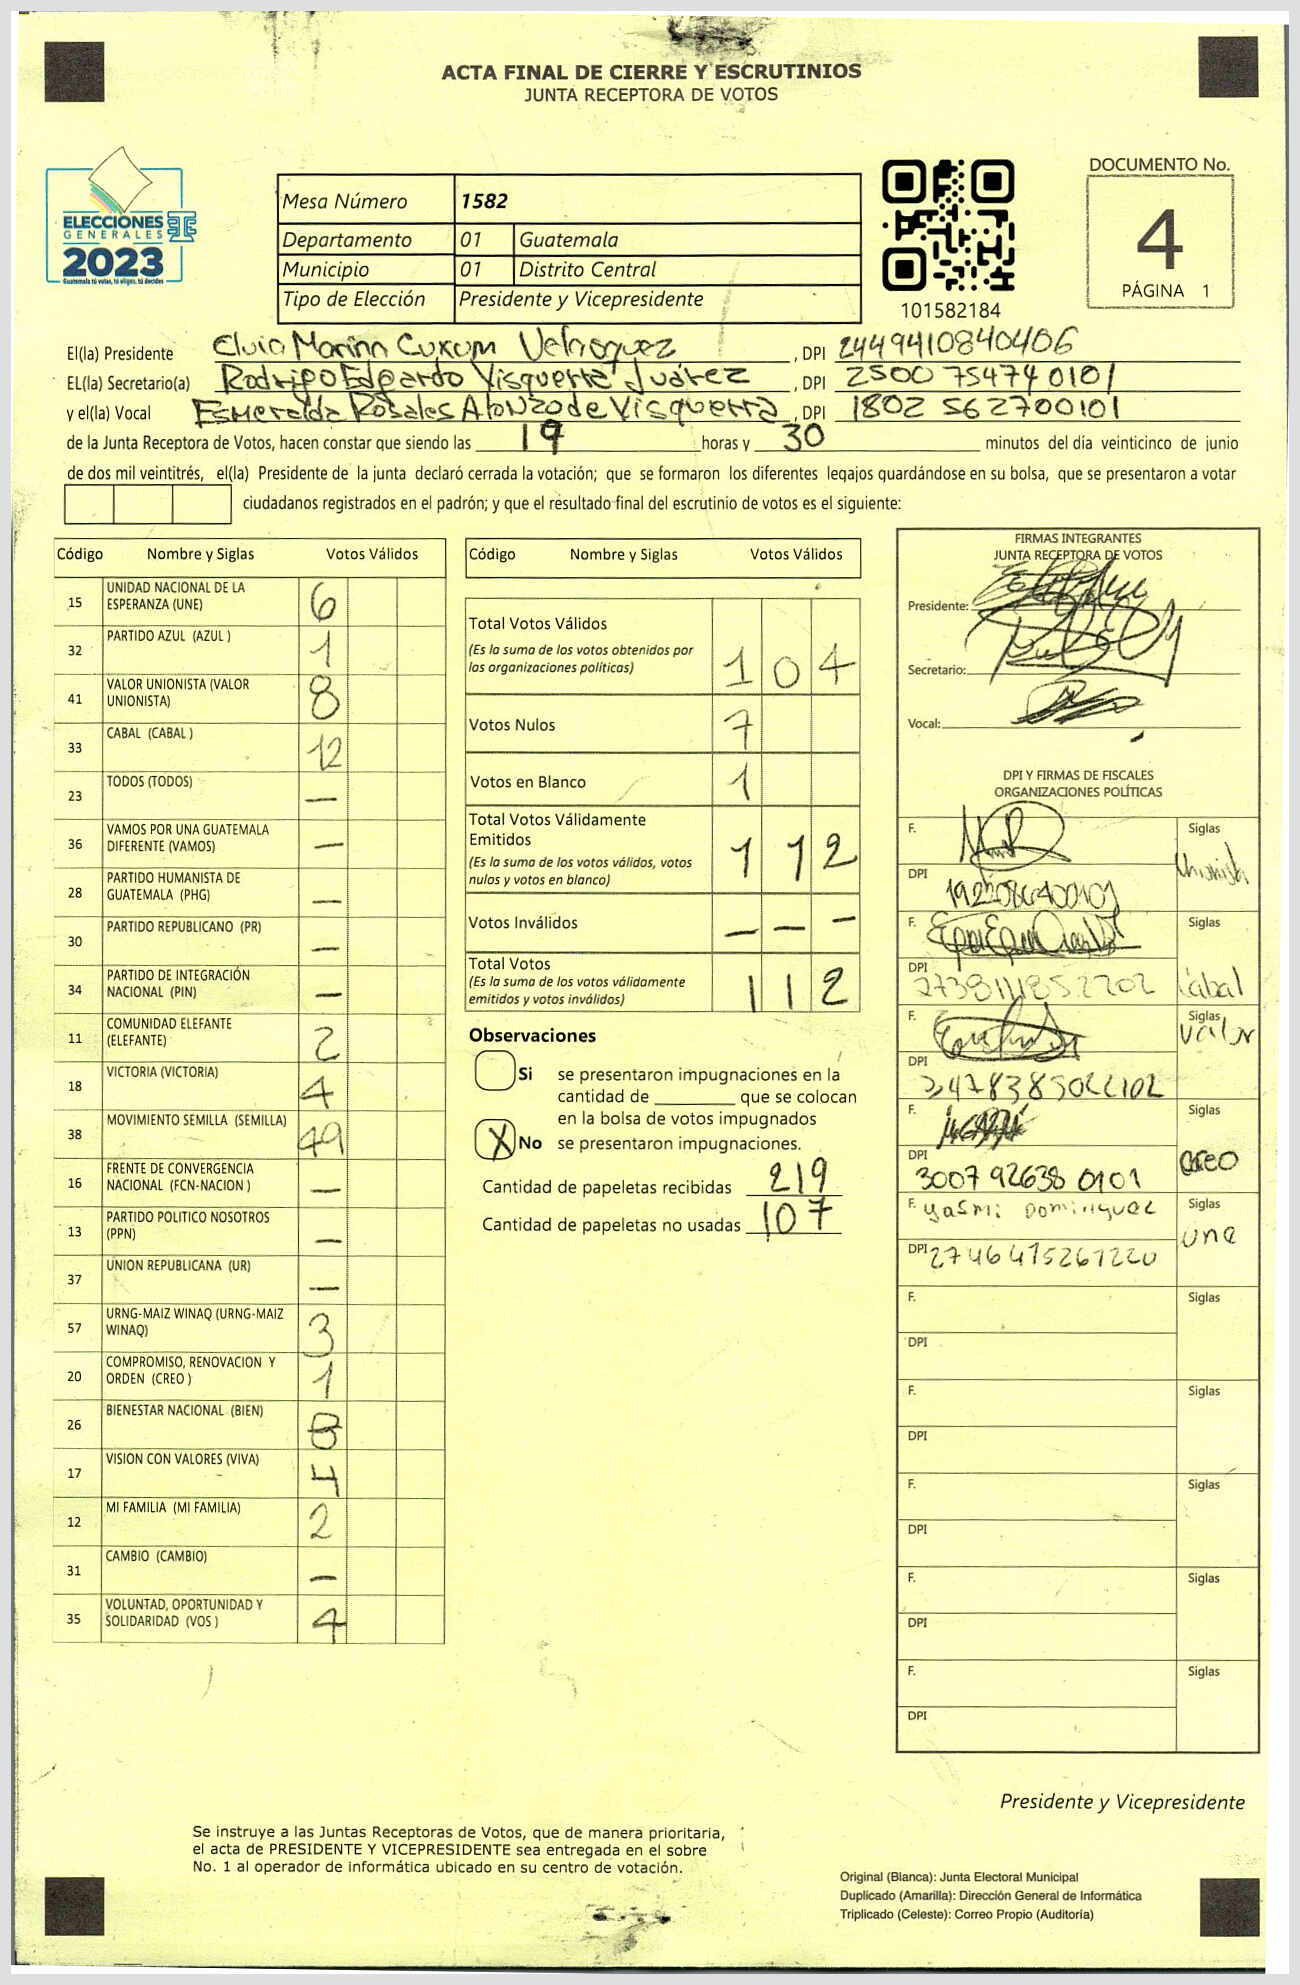 ACTA FINAL DE CIERRE Y ESCRUTINIOS
JUNTA RECEPTORA DE VOTOS
ELECCIONES
GENERALES
2023
Guatemala tú votas, tú eliges, tú decides
Mesa Número 1582
Departamento 01 Guatemala
Municipio 01 Distrito Central
Tipo de Elección Presidente y Vicepresidente
101582184
DOCUMENTO No.
4
PÁGINA 1
El(la) Presidente Elvia Marina Cuxum Velasquez, DPI 2449410840406
EL(la) Secretario(a) Rodrigo Edgardo Visquerra Juárez, DPI 2500 75474 0101
y el(la) Vocal Esmeralda Rosales Alonzo de Visquerra, DPI 1802 562700101
de la Junta Receptora de Votos, hacen constar que siendo las 19 horas y 30 minutos del día veinticinco de junio
de dos mil veintitrés, el(la) Presidente de la junta declaró cerrada la votación; que se formaron los diferentes legajos guardándose en su bolsa, que se presentaron a votar
ciudadanos registrados en el padrón; y que el resultado final del escrutinio de votos es el siguiente:
Código Nombre y Siglas Votos Válidos
15 UNIDAD NACIONAL DE LA ESPERANZA (UNE) 6
32 PARTIDO AZUL (AZUL ) 1
41 VALOR UNIONISTA (VALOR UNIONISTA) 8
33 CABAL (CABAL ) 12
23 TODOS (TODOS) —
36 VAMOS POR UNA GUATEMALA DIFERENTE (VAMOS) —
28 PARTIDO HUMANISTA DE GUATEMALA (PHG) —
30 PARTIDO REPUBLICANO (PR) —
34 PARTIDO DE INTEGRACIÓN NACIONAL (PIN) —
11 COMUNIDAD ELEFANTE (ELEFANTE) 2
18 VICTORIA (VICTORIA) 4
38 MOVIMIENTO SEMILLA (SEMILLA) 49
16 FRENTE DE CONVERGENCIA NACIONAL (FCN-NACION ) —
13 PARTIDO POLITICO NOSOTROS (PPN) —
37 UNION REPUBLICANA (UR) —
57 URNG-MAIZ WINAQ (URNG-MAIZ WINAQ) 3
20 COMPROMISO, RENOVACION Y ORDEN (CREO ) 1
26 BIENESTAR NACIONAL (BIEN) 8
17 VISION CON VALORES (VIVA) 4
12 MI FAMILIA (MI FAMILIA) 2
31 CAMBIO (CAMBIO) —
35 VOLUNTAD, OPORTUNIDAD Y SOLIDARIDAD (VOS ) 4
Código Nombre y Siglas Votos Válidos
Total Votos Válidos 104
(Es la suma de los votos obtenidos por
las organizaciones políticas)
Votos Nulos 7
Votos en Blanco 1
Total Votos Válidamente
Emitidos 112
(Es la suma de los votos válidos, votos
nulos y votos en blanco)
Votos Inválidos — — —
Total Votos 112
(Es la suma de los votos válidamente
emitidos y votos inválidos)
Observaciones
Si se presentaron impugnaciones en la
cantidad de ________ que se colocan
en la bolsa de votos impugnados
X No se presentaron impugnaciones.
Cantidad de papeletas recibidas 219
Cantidad de papeletas no usadas 107
FIRMAS INTEGRANTES
JUNTA RECEPTORA DE VOTOS
Presidente:
Secretario:
Vocal:
DPI Y FIRMAS DE FISCALES
ORGANIZACIONES POLÍTICAS
F. Siglas Unionista
DPI
F. Siglas Cabal
DPI 2738111852202
F. Siglas Valor
DPI
F. Siglas CREO
DPI 3007 92638 0101
F. Yasmi Dominguez Siglas une
DPI 2746475261220
F. Siglas
DPI
F. Siglas
DPI
F. Siglas
DPI
F. Siglas
DPI
F. Siglas
DPI
Presidente y Vicepresidente
Se instruye a las Juntas Receptoras de Votos, que de manera prioritaria,
el acta de PRESIDENTE Y VICEPRESIDENTE sea entregada en el sobre
No. 1 al operador de informática ubicado en su centro de votación.
Original (Blanca): Junta Electoral Municipal
Duplicado (Amarilla): Dirección General de Informática
Triplicado (Celeste): Correo Propio (Auditoría)